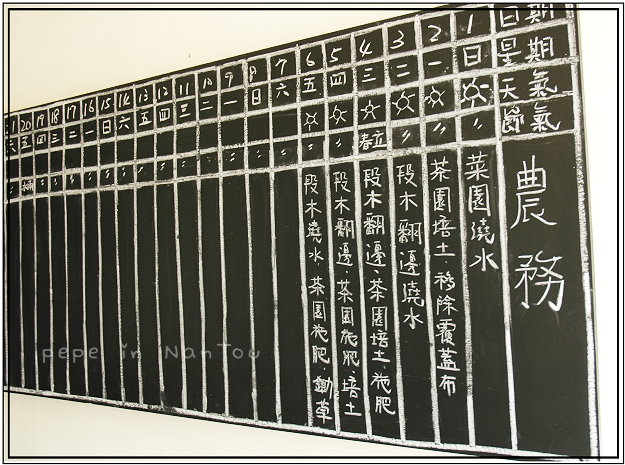 日期 1 2 3 4 5 6 7 8 9 10 11 12 13 14 15 16 17 18 19 20
星期 日 一 二 三 四 五 六 日 一 二 三 四 五 六 日 一 二 三 四 五 六
天氣
節氣 〃 〃 〃 立春 〃 〃
農務
菜園澆水
茶園培土 移除覆蓋布
段木翻邊澆水
段木翻邊、茶園培土、施肥
段木翻邊、茶園施肥、培土
段木澆水、茶園施肥、鋤草
pepe in NanTou